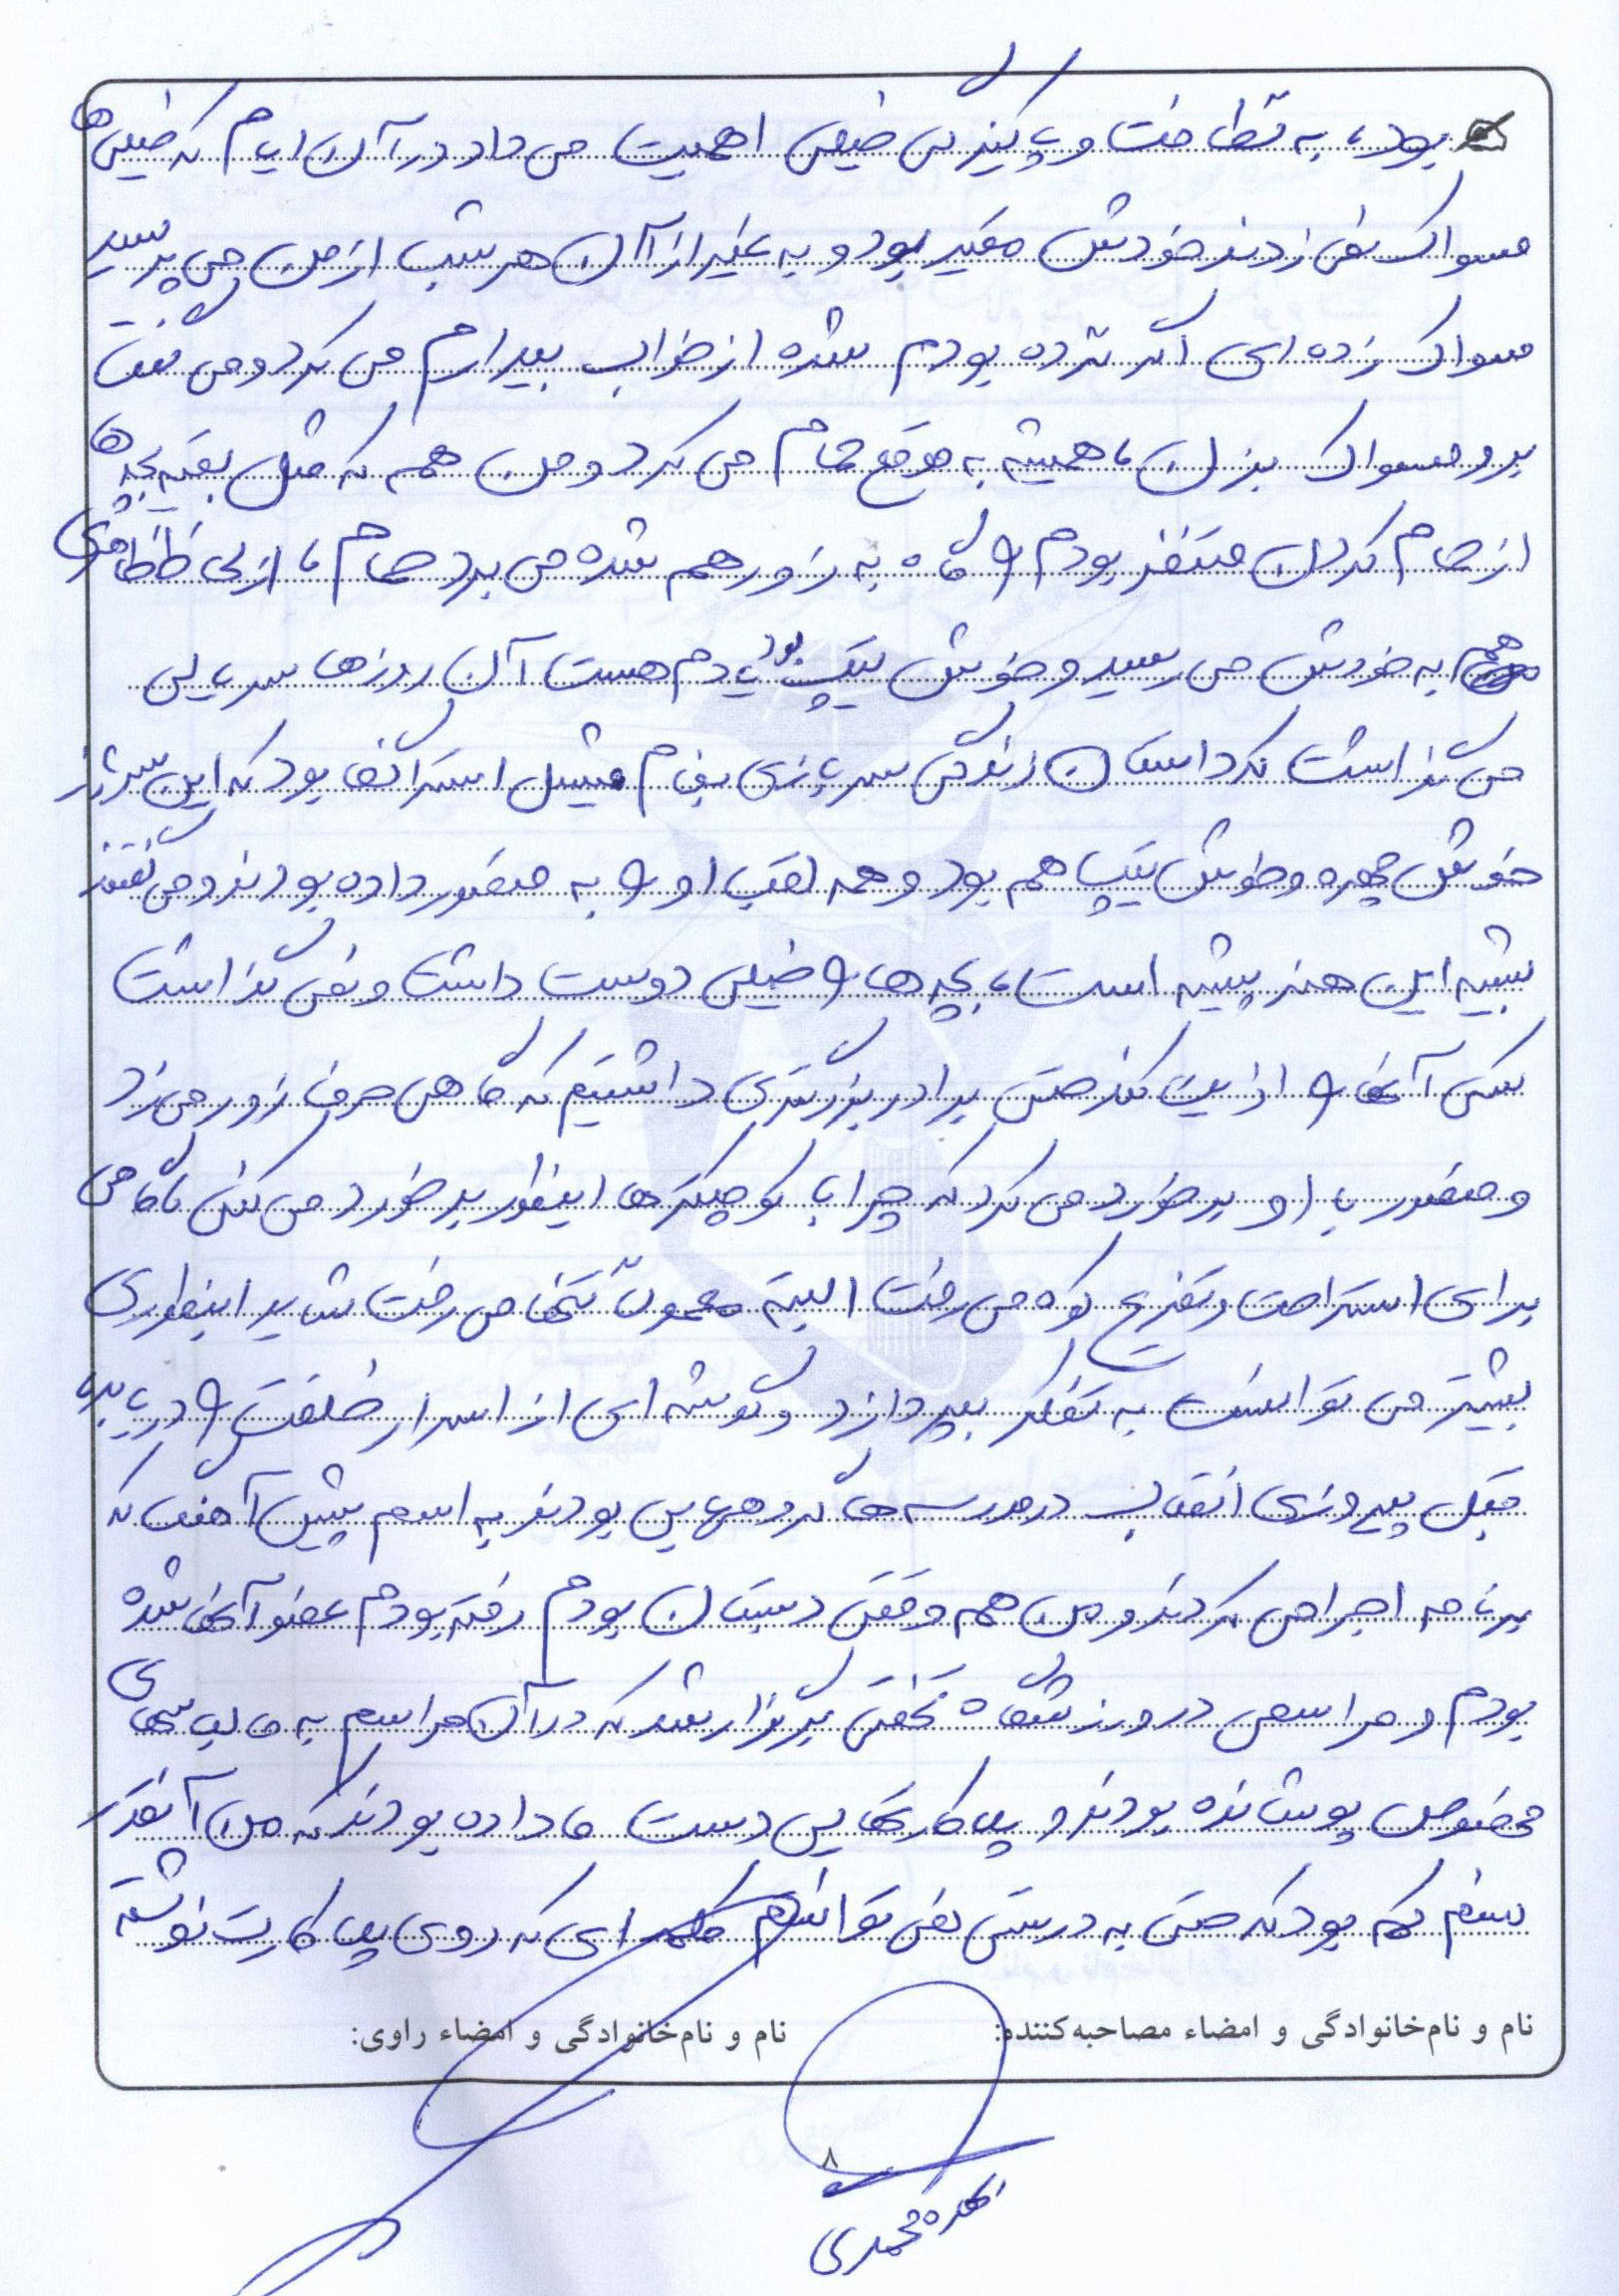 بود، به نظافت و پاکیزگی خیلی اهمیت می داد در آن ایام که خیلی ها
مسواک نمی زدند خودش مقید بود و به غیر از آن هر شب از من می پرسید
مسواک زده ای اگر نزده بودم شده از خواب بیدارم می کرد و می گفت
برو مسواک بزن، همیشه به موقع حمام می کرد و من هم که مثل بقیه بچه ها
از حمام کردن متنفر بودم و گاه به زور هم شده می برد حمام، از لحاظ ظاهری
هم به خودش می رسید و خوش تیپ بود یادم هست آن روزها سریالی
می گذاشت که داستان زندگی سربازی بنام میشل استرانگف بود که این سرباز
خوش چهره و خوش تیپ هم بود و همه لقب او را به منصور داده بودند و می گفتند
شبیه این هنرپیشه است، بچه ها را خیلی دوست داشت و نمی گذاشت
کسی آنها را اذیت کند حتی برادر بزرگتری داشتیم که گاهی حرف زور می زد
و منصور با او برخورد می کرد که چرا با کوچکترها اینطور برخورد می کنی گاها می
برای استراحت و تفریح کوه می رفت البته معمولاً تنها می رفت شاید اینطوری
بیشتر می توانست به تفکر بپردازد و گوشه ای از اسرار خلقت را دریابد،
قبل پیروزی انقلاب در مدرسه ها گروههایی بودند به اسم پیش آهنگ که
برنامه اجرا می کردند و من هم وقتی دبستان بودم رفته بودم عضو آنها شده
بودم و مراسمی در ورزشگاه تختی برگزار شد که در آن مراسم به ما لباسهای
مخصوص پوشانده بودند و پلاکاردهایی دست ما داده بودند که من آنقدر
سنم کم بود که حتی به درستی نمی توانم کلمه ای که روی پلاکارت نوشته
نام و نام‌خانوادگی و امضاء مصاحبه‌کننده:
نام و نام‌خانوادگی و امضاء راوی:
۸
محمدی